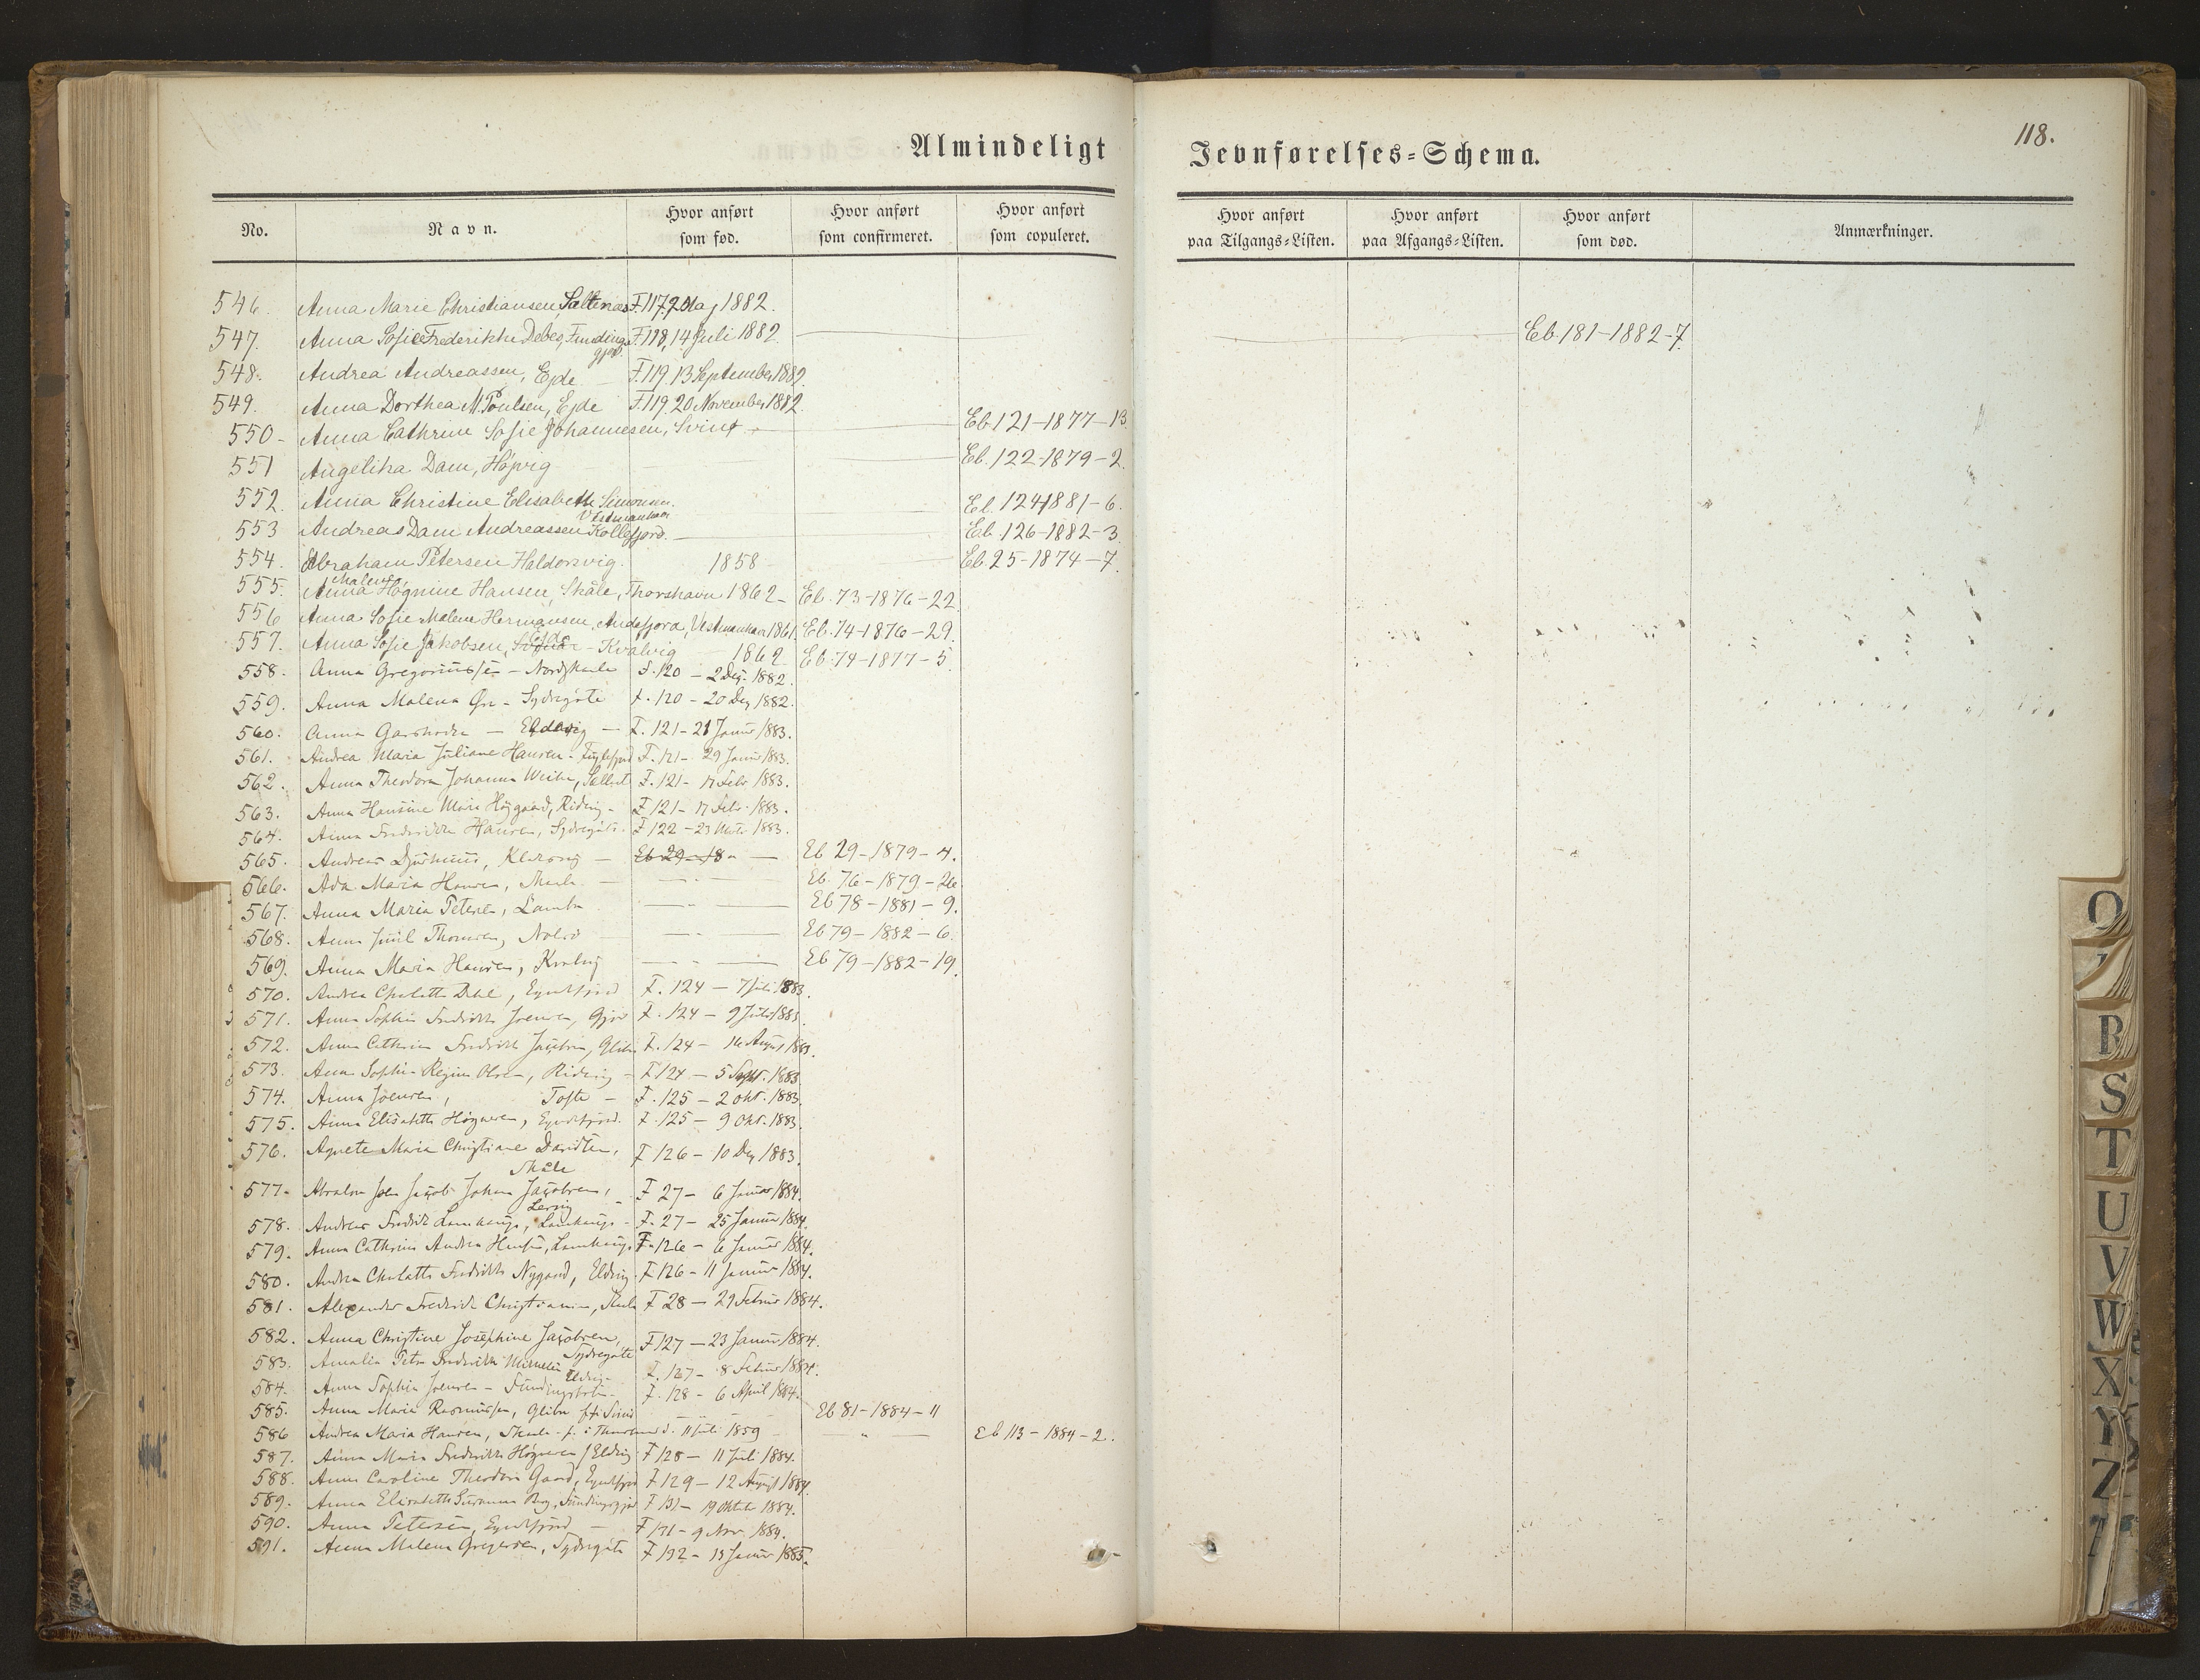 Almindeligt Jevnførelses=Schema.
118.
No. Navn. Hvor anført som fød. Hvor anført som confirmeret. Hvor anført som copuleret. Hvor anført paa Tilgangs=Listen. Hvor anført paa Afgangs=Listen. Hvor anført som død. Anmærkninger.
546. Anna Marie Christiansen, Saltenæs F.117, Maj 1882.
547. Anna Sofie Frederikke Debes, Fundings gjov. F.118, 14 Juli 1882. Eb. 181-1882-7.
548. Andrea Andreassen, Ejde F.119 13 September 1882.
549. Anna Dorthea M. Poulsen, Ejde F.119. 20 November 1882.
550- Anna Cathrine Sofie Johannesen, Svinø Eb 121-1877-13.
551 Angelika Dam, Højvig Eb. 122-1879-2.
552. Anna Christine Elisabeth Simonsen. Vestmanhavn El. 124 1881-6.
553 Andreas Dam Andreassen Kollefjord. Eb. 126-1882-3.
554. Abraham Petersen Haldorsvig. 1858 Eb. 25-1874-7.
555. Anna Malene Høgnine Hansen, Skåle, Thorshavn 1862- Eb. 73-1876-22
556 Anna Sofie Malene Hermansen, Andefjord, Vestmanhavn 1861. Eb. 74-1876-29.
557. Anna Sofie Jakobsen, Ejde - Kvalvig 1862 Eb. 74-1877-5.
558. Anna Gregoriussen - Nordskaale F. 120 - 2 Dez. 1882.
559. Anna Malena Øre - Sydregøte F. 120 - 20 Dez 1882.
560. Anna - Eldevig - F. 121-21 Januar 1883.
561. Andrea Maria Juliane Hansen - Fuglefjord F. 121- 29 Januar 1883.
562. Anna Theodora Johanna Weihe, F. 121- 17 Febr 1883.
563. Anna Hansine Marie Højgaard, Ridevig - F 121- 17 Febr. 1883.
564. Anna Fredrikke Hansen, Sydregøte. F 122 - 23 Marts 1883.
565. Andreas Djurhuus, - Eb 29-18- Eb 29-1879-4.
566. Ada Maria Hansen, Skaale Eb. 76-1879-26
567. Anna Maria Petersen, Lamba Eb 78-1881-9.
568. Anna Thomsen, Nolsø Eb 79-1882-6.
569. Anna Maria Hansen, Kvalvig Eb 79-1882-19.
570. Andrea Charlotte Dahl, F. 124 - 7 Juli 1883.
571. Anna Sophie Fredrikke Joensen, Gjov F. 124 - 9 Juli 1883.
572. Anna Cathrine Fredrikke Jacobsen, F. 124 - 16 August 1883.
573. Anna Sophie Regine Olsen, Ridevig - F 124 - 5 Sept. 1883
574. Anna Joensen, Tofte - F. 125 - 2 Okt. 1883.
575. Anna Elisabeth Høgnesen, F. 125 - 9 Okt. 1883.
576. Agnete Maria Christiane Davidsen, Skåle F 126 - 10 Dez 1883.
577. Absalon Joen Jacob Johan Jacobsen, Lervig - F 27 - 6 Januar 1884.
578. Andreas Fredrik Lamhauge, Lamhauge - F. 27 - 25 Januar 1884.
579. Anna Cathrine Andrea Hansen, Lamhauge. F. 126 - 6 Januar 1884.
580. Andrea Charlotte Fredrikke Nygaard, Eldevig. F 126 - 11 Januar 1884.
581. Alexander Fredrik Christiansen, Skaale F 28 - 29 Februar 1884.
582. Anna Christine Josephine Jacobsen, Sydregøte F 127 - 23 Januar 1884.
583. Amalia Petra Fredrikke Mikkelsen Eldevig F. 127 - 8 Februar 1884.
584. Anna Sophia Joensen - F. 128 - 6 April 1884.
585. Anna Maria Rasmussen, Eb 81-1884-11
586 Andrea Maria Hansen, Skaale f. i Thorshavn d. 11 Juli 1859 Eb 113-1884-2.
587. Anna Maria Fredrikke Høgnesen, Eldevig F 128 - 11 Juli 1884.
588. Anna Caroline Theodora Gaard, F 129 - 12 August 1884.
589. Anna Elisabeth Susanna F 131 - 19 Oktbr 1884.
590. Anna Petersen, - F 131 - 9 Nov. 1884.
591. Anna Malena Gregersen, Sydregøte F 132 - 15 Januar 1885.
O
R
S
T
U
V
W
X
Y
Z